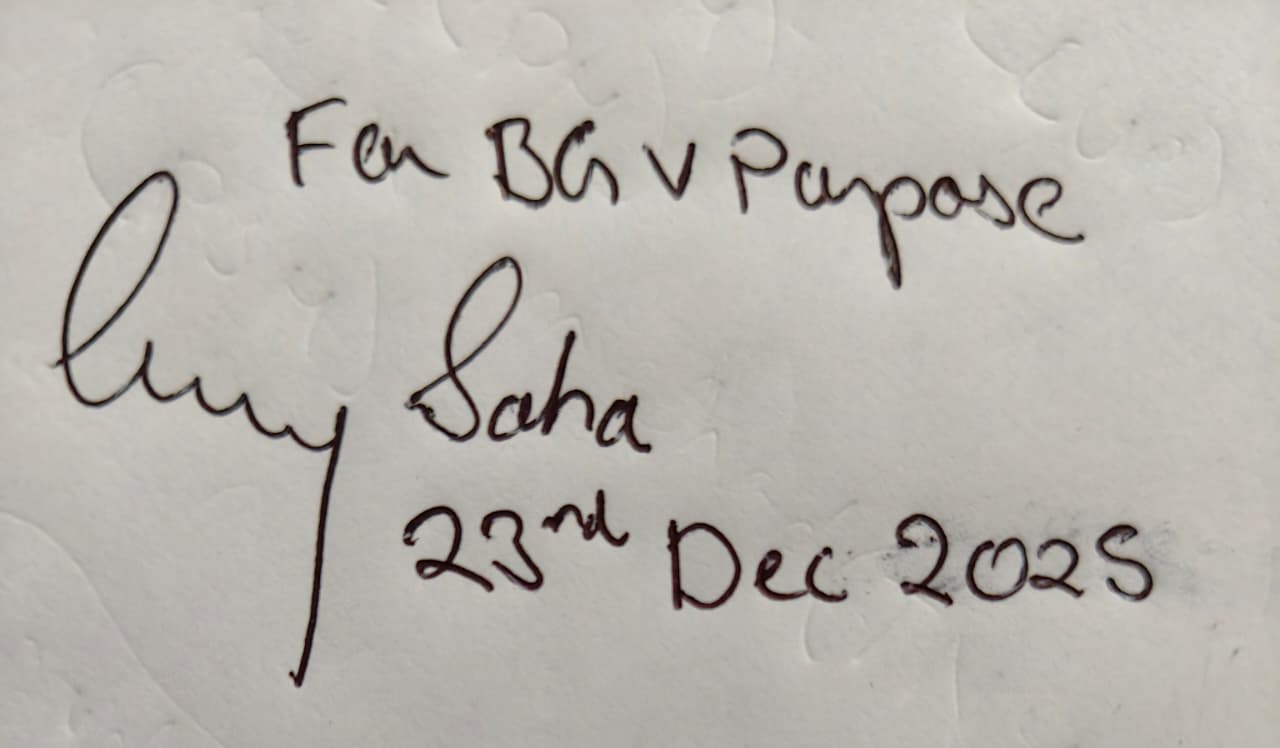 For BGV Purpose
Saha
23nd Dec 2025